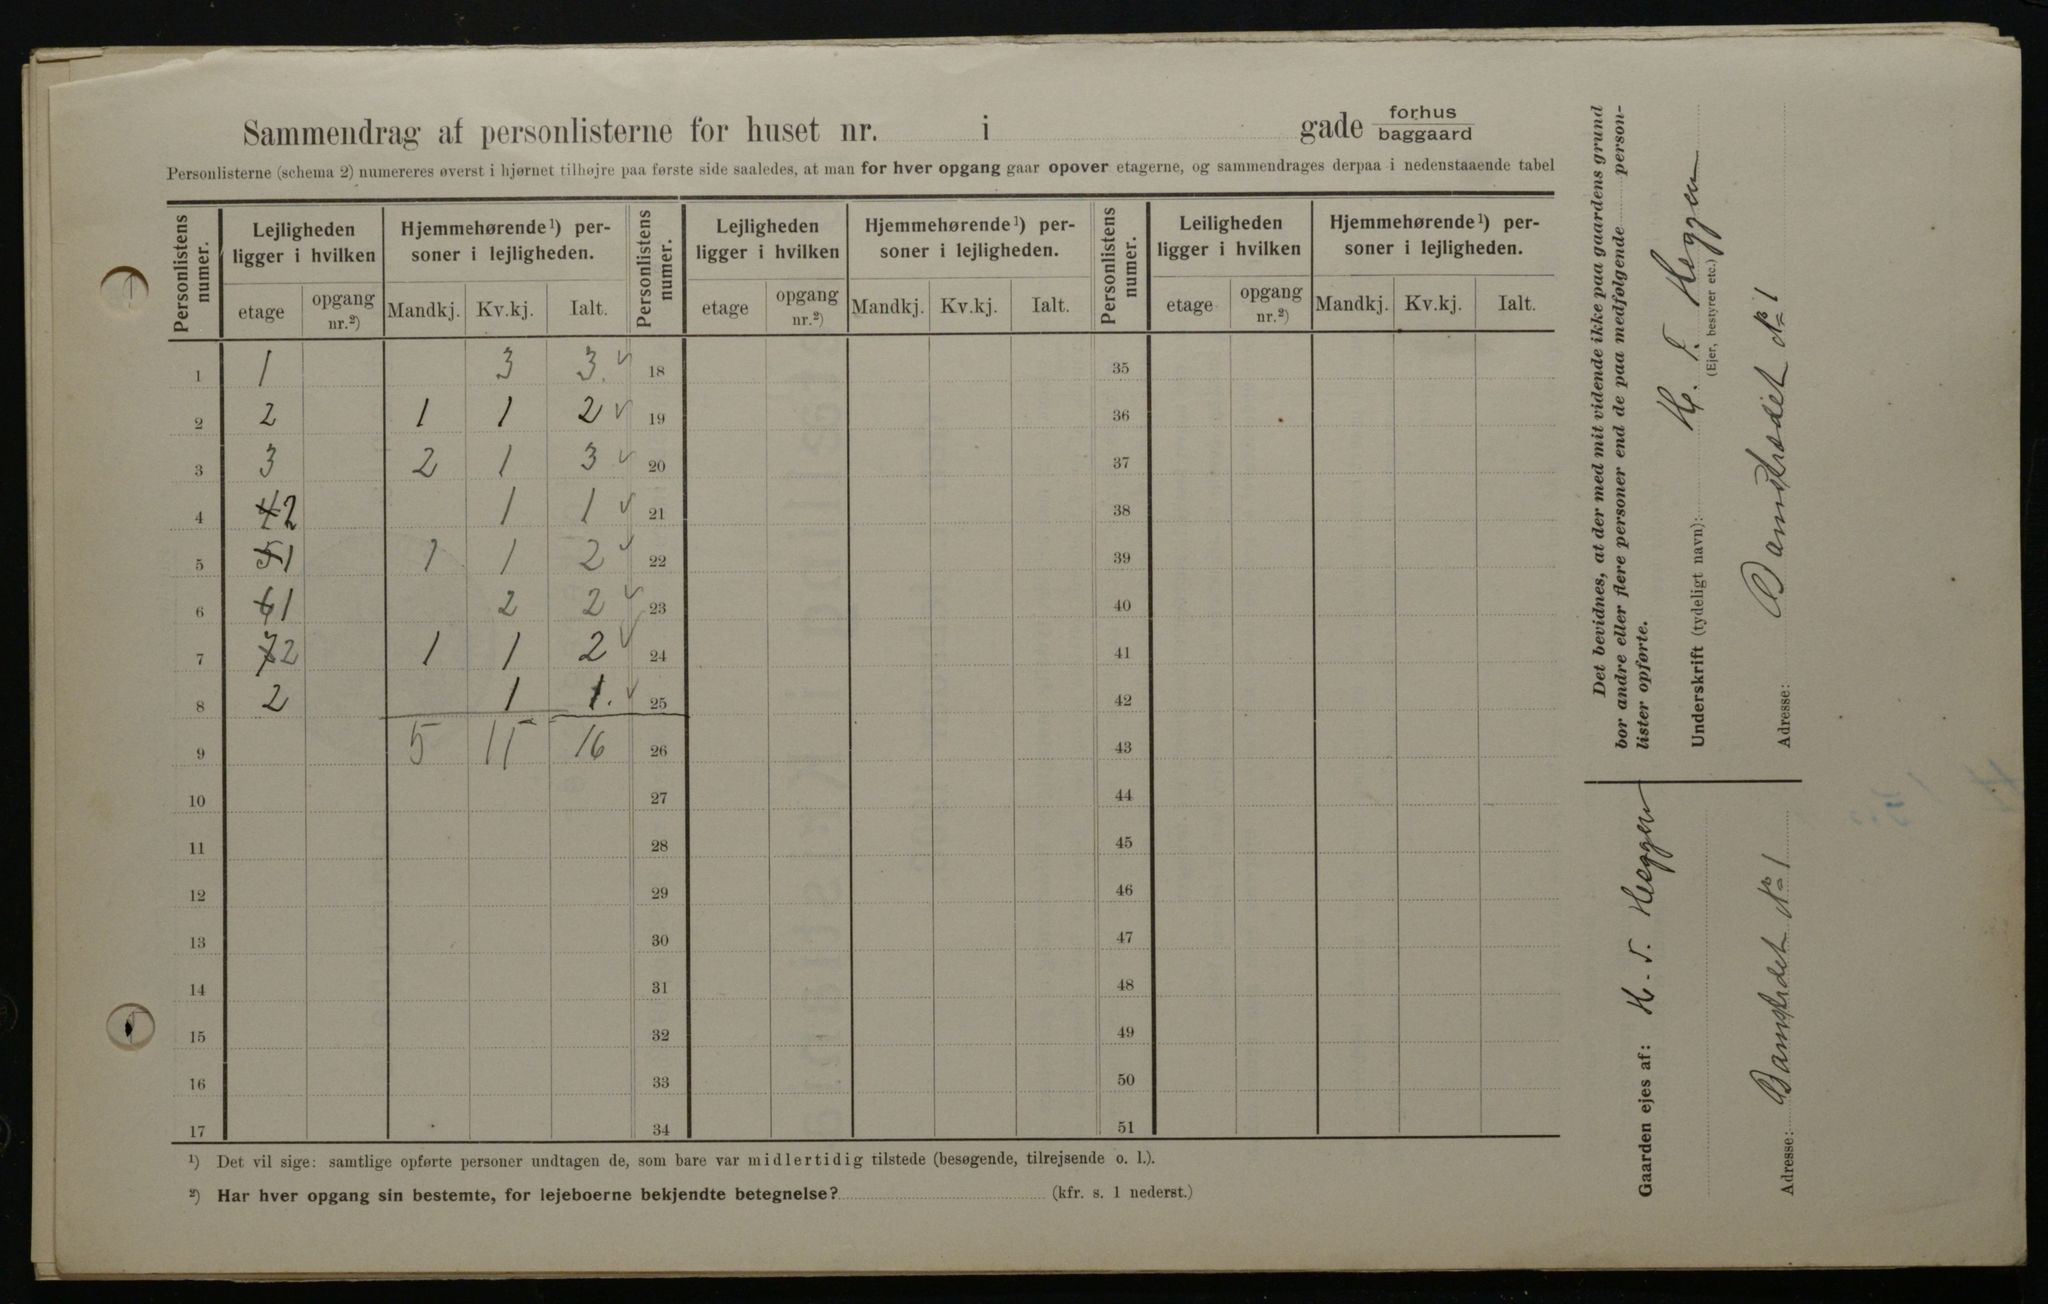 Sammendrag af personlisterne for huset nr. i gade forhus baggaard
Personlisterne (schema 2) numereres øverst i hjørnet tilhøjre paa første side saaledes, at man for hver opgang gaar opover etagerne, og sammendrages derpaa i nedenstaaende tabel
Personlistens numer. Lejligheden ligger i hvilken Hjemmehørende ¹) personer i lejligheden. Personlistens numer. Lejligheden ligger i hvilken Hjemmehørende ¹) personer i lejligheden. Personlistens numer. Leiligheden ligger i hvilken Hjemmehørende ¹) personer i lejligheden.
etage opgang nr.²) Mandkj. Kv.kj. Ialt. etage opgang nr.²) Mandkj. Kv.kj. Ialt. etage opgang nr.²) Mandkj. Kv.kj. Ialt.
1 1 3 3. 18 35
2 2 1 1 2 19 36
3 3 2 1 3 20 37
4 4 2 1 1 21 38
5 5 1 1 1 2 22 39
6 6 1 2 2 23 40
7 7 2 1 1 2 24 41
8 2 1 1. 25 42
9 5 11 16 26 43
10 27 44
11 28 45
12 29 46
13 30 47
14 31 48
15 32 49
16 33 50
17 34 51
¹) Det vil sige: samtlige opførte personer undtagen de, som bare var midlertidig tilstede (besøgende, tilrejsende o. l.).
²) Har hver opgang sin bestemte, for lejeboerne bekjendte betegnelse? (kfr. s. 1 nederst.)
Det bevidnes, at der med mit vidende ikke paa gaardens grund
bor andre eller flere personer end de paa medfølgende person-
lister opførte.
Underskrift (tydeligt navn): H. T. Heggen
(Ejer, bestyrer etc.)
Adresse: Bamstrædet № 1
Gaarden ejes af: H. T. Heggen
Adresse: Bamstrædet № 1